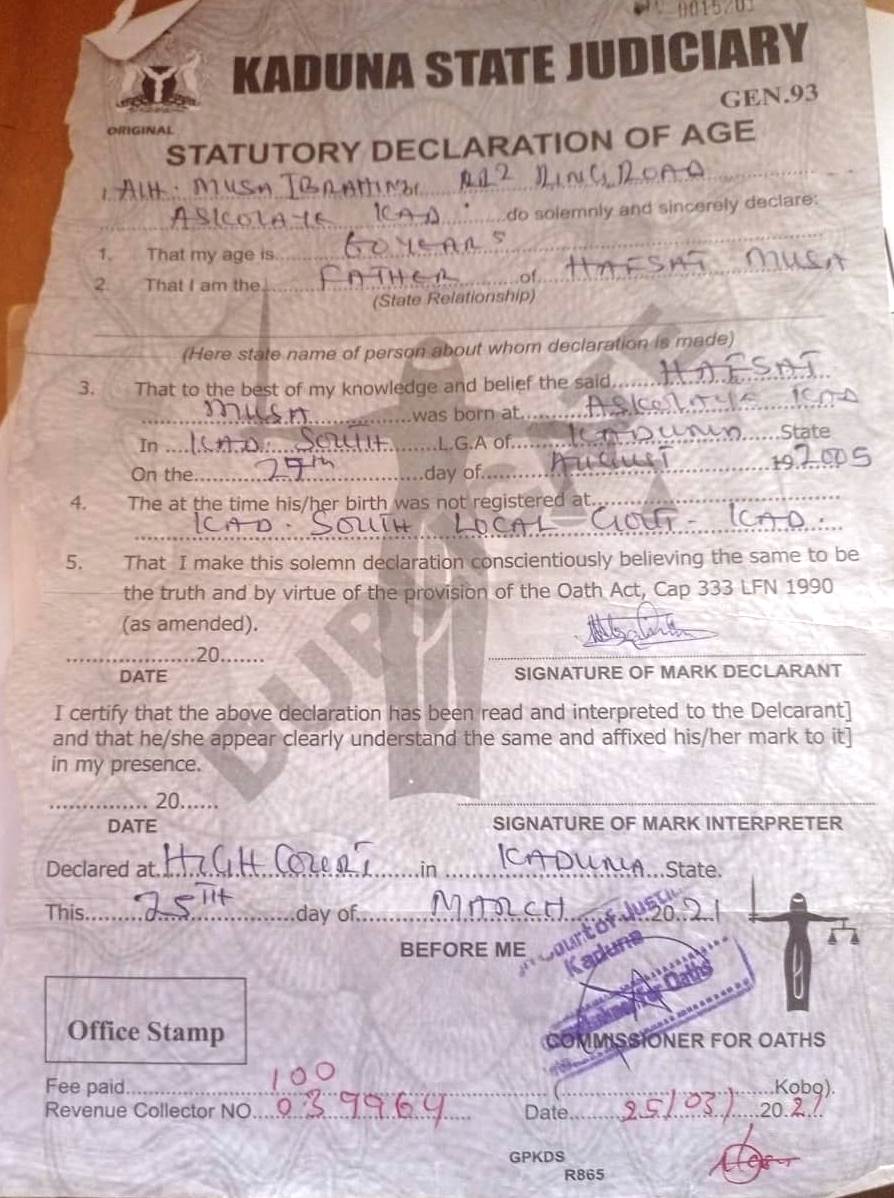 KADUNA STATE JUDICIARY
GEN.93
ORIGINAL
STATUTORY DECLARATION OF AGE
I ALH. MUSA IBRAHIM RING ROAD
ASIKOLAYE KAD. do solemnly and sincerely declare:
1. That my age is 60 YEARS
2. That I am the FATHER of HAFSAT MUSA
(State Relationship)
(Here state name of person about whom declaration is made)
3. That to the best of my knowledge and belief the said HAFSAT
MUSA was born at ASIKOLAYE KAD
In KAD. SOUTH L.G.A of KADUNA State
On the day of AUGUST 19 2005
4. The at the time his/her birth was not registered at
KAD. SOUTH LOCAL GOVT - KAD.
5. That I make this solemn declaration conscientiously believing the same to be
the truth and by virtue of the provision of the Oath Act, Cap 333 LFN 1990
(as amended).
20
DATE
SIGNATURE OF MARK DECLARANT
I certify that the above declaration has been read and interpreted to the Delcarant]
and that he/she appear clearly understand the same and affixed his/her mark to it]
in my presence.
20
DATE
SIGNATURE OF MARK INTERPRETER
Declared at HIGH COURT in KADUNA State.
This 25TH day of MARCH 2021
BEFORE ME
Court of Justi
Kaduna
for Oaths
COMMISSIONER FOR OATHS
Office Stamp
Fee paid 100 ( Kobo).
Revenue Collector NO. 039964 Date 25/03/ 2021
GPKDS
R865
DUPLICATE